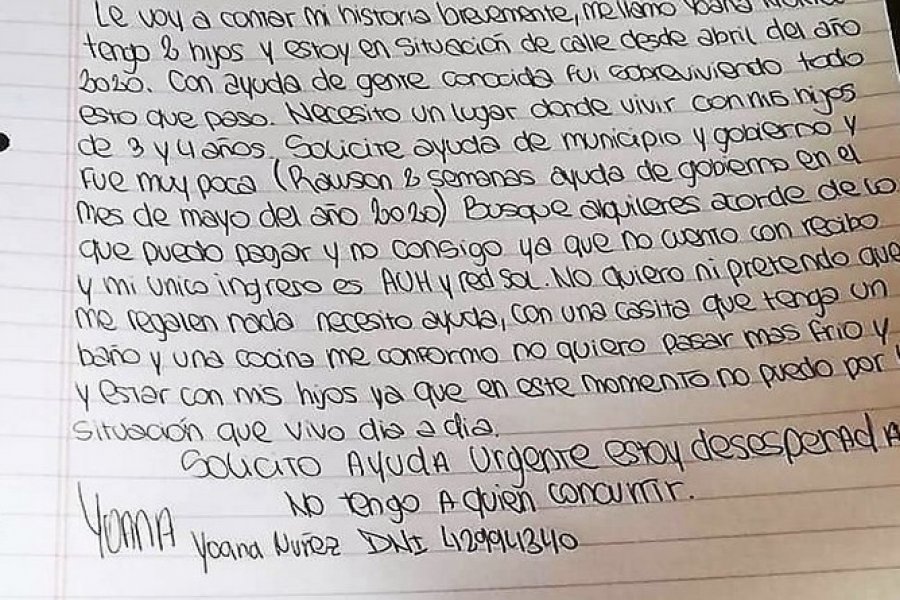 Le voy a contar mi historia brevemente, me llamo Yoana
tengo 2 hijos y estoy en situación de calle desde abril del año
2020. Con ayuda de gente conocida fui sobreviviendo todo
esto que paso. Necesito un lugar donde vivir con mis hijos
de 3 y 4 años, Solicite ayuda de municipio y gobierno y
fue muy poca (Rawson 2 semanas ayuda de gobierno en el
mes de mayo del año 2020) Busque alquileres acorde de lo
que puedo pagar y no consigo ya que no cuento con recibo
y mi unico ingreso es AUH y red sol. No quiero ni pretendo que
me regalen nada necesito ayuda, con una casita que tenga un
baño y una cocina me conformo no quiero pasar mas frio y
y estar con mis hijos ya que en este momento no puedo por
situación que vivo dia a dia.
Solicito AYUDA Urgente estoy desesperADA
No tengo A quien concurrir.
YOANA
Yoana Nuñez DNI 42994340